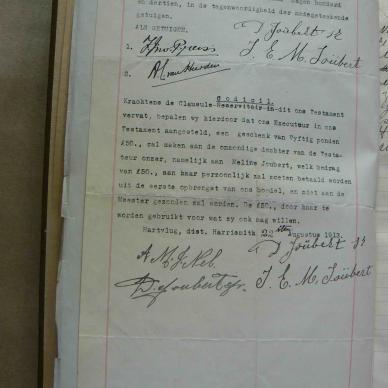 en dertien, in de tegenwoordigheid der ondergeteekende
getuigen.
ALS GETUIGEN.
D Joubert sr
1.
J. E. M. Joubert
2.
Codisil.
Krachtens de Clausule Reserwitoir in dit ons Testament
vervat, bepalen wy hierdoor dat ons Executeur in ons
Testament aangesteld, een geschenk van Vyftig ponden
£50., zal maken aan de onmondige dochter van de Testa-
teur onser, namelijk aan Meline Joubert, welk bedrag
van £50., aan haar persoonlijk zal moeten betaald worden
uit de eerste opbrengst van ons boedel, en niet aan de
Meester gezonden zal worden. De £50., door haar te
worden gebruikt voor wat zy ook mag willen.
Hartvlug, dist. Harrismith 22sten Augustus 1913.
D Joübert sr
A. M. J. Nel.
D. Joubert jr.
J. E. M. Joübert